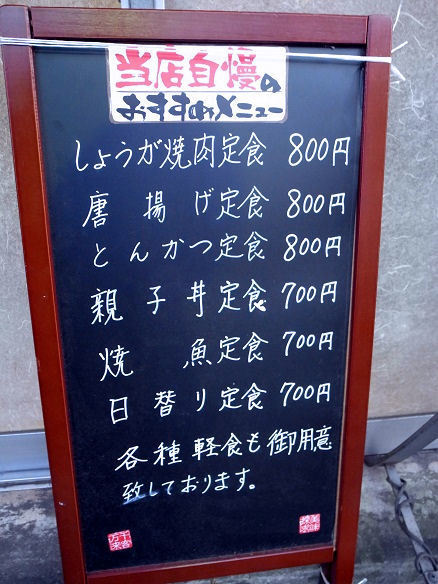 当店自慢の
おすすめメニュー
しょうが焼肉定食 800円
唐揚げ定食 800円
とんかつ定食 800円
親子丼定食 700円
焼魚定食 700円
日替り定食 700円
各種軽食も御用意
致しております。
千客
万来